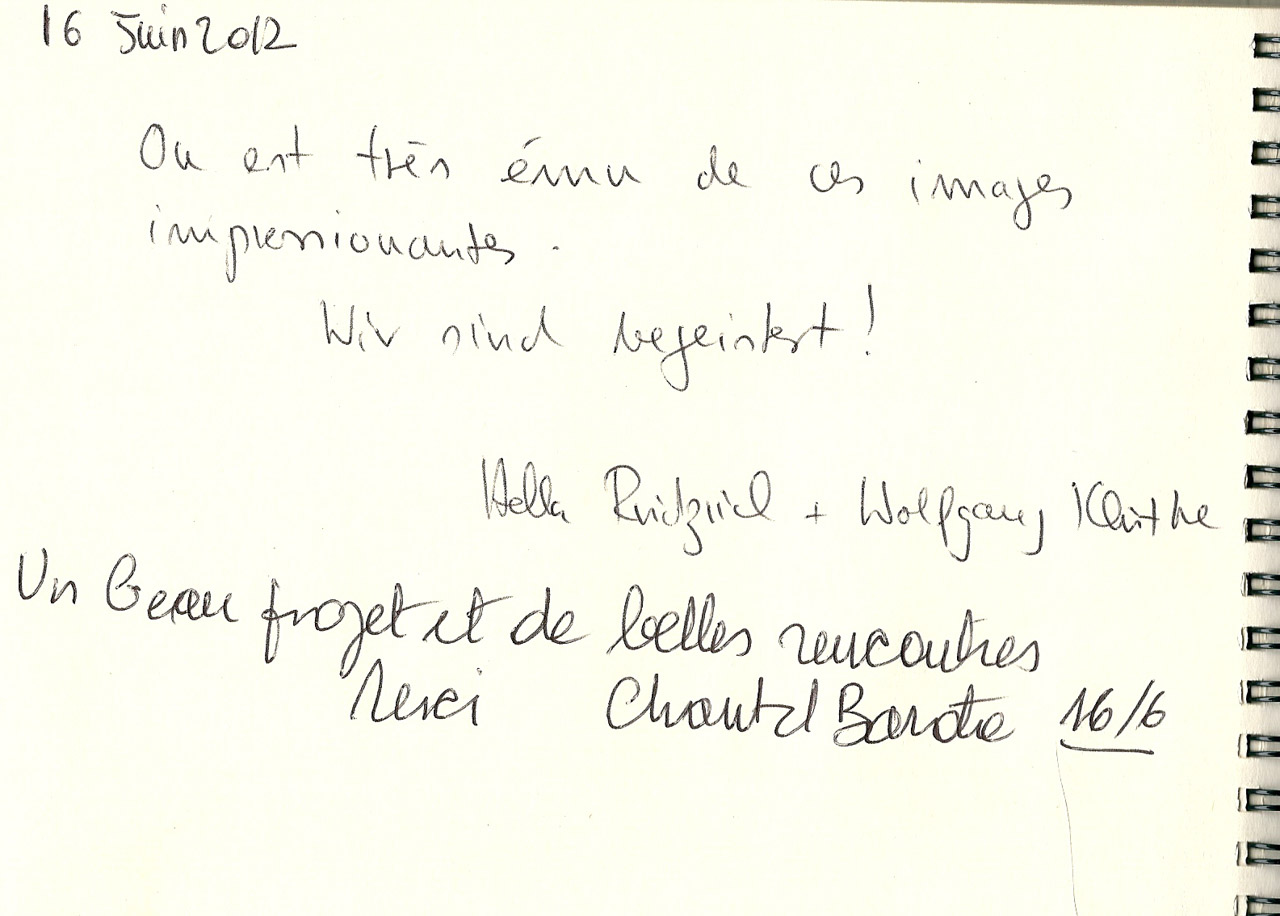 16 Juin 2012
On est très ému de ces images
impressionantes.
Wir sind begeistert!
Hella + Wolfgang
Un beau projet et de belles rencontres
Merci Chantal 16/6